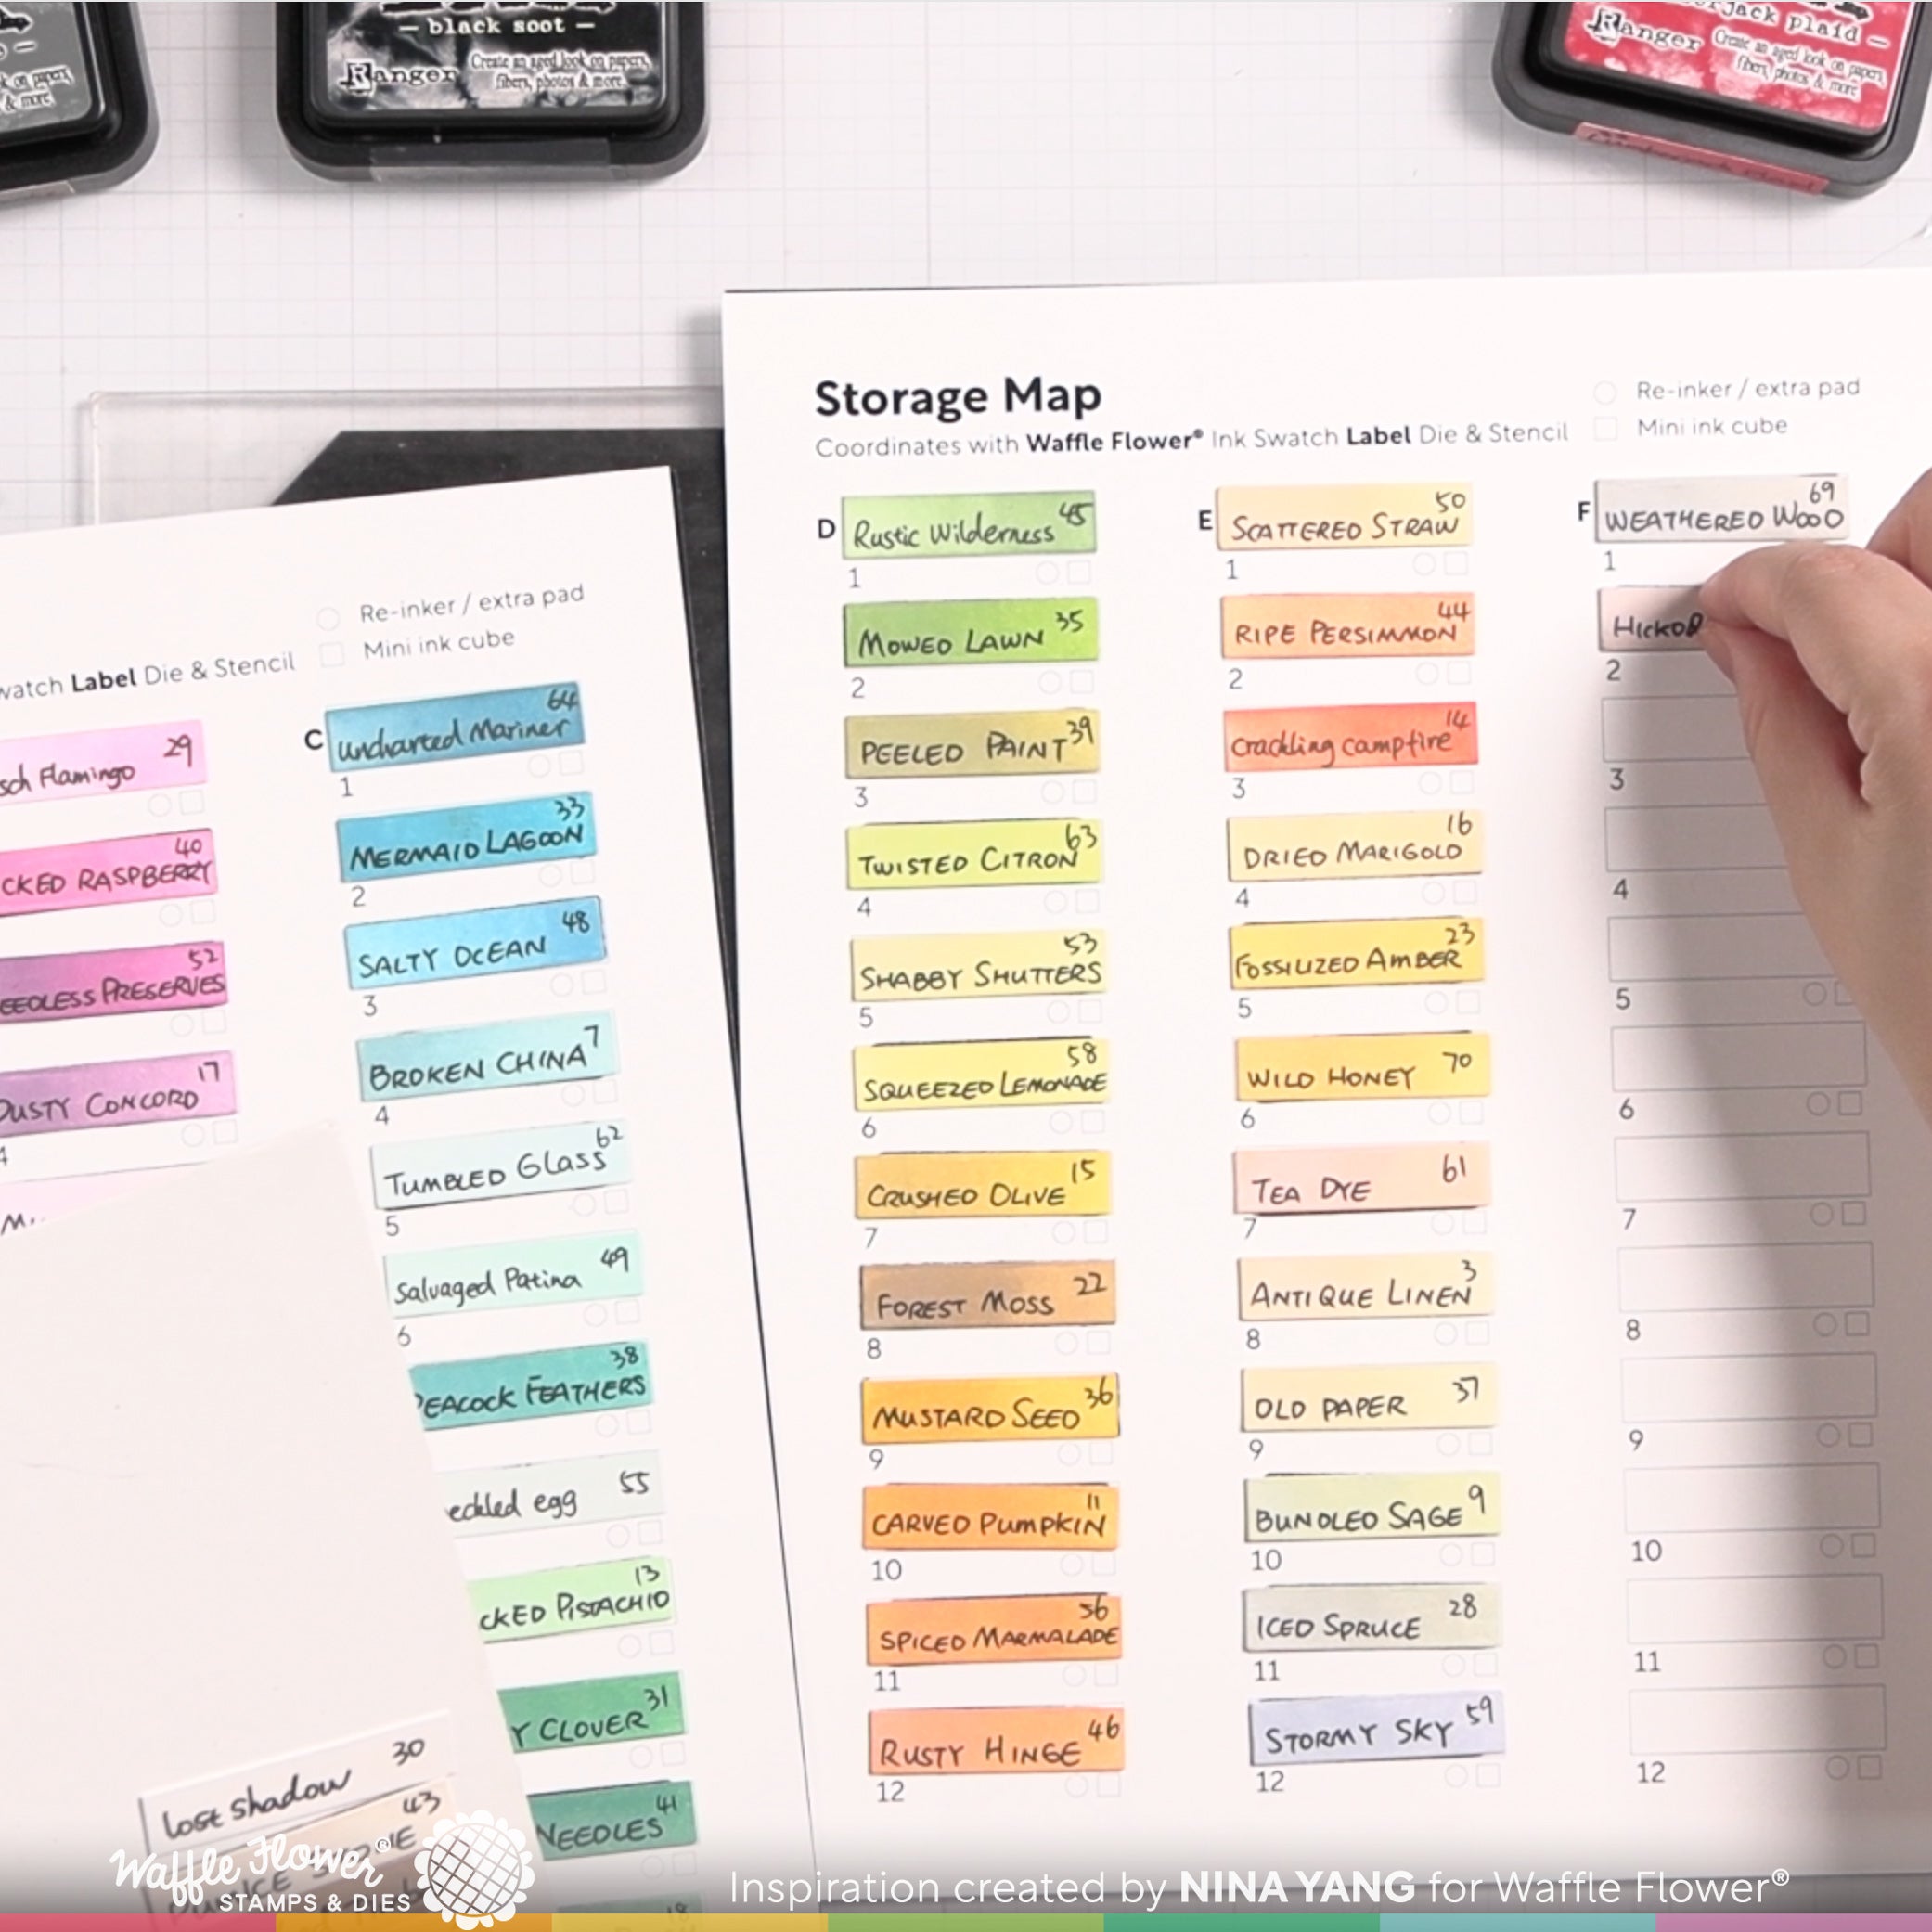 — black soot —
Ranger
Create an aged look on papers,
fibers, photos & more.
k on papers,
& more
jack plaid —
Ranger
Create an aged look on papers,
fibers, photos & more.
Label Die & Stencil
Re-inker / extra pad
Mini ink cube
29
Flamingo
40
RASPBERRY
52
PRESERVES
17
DUSTY CONCORD
C
64
uncharted Mariner
1
33
MERMAID LAGOON
2
48
SALTY OCEAN
3
7
BROKEN CHINA
4
62
TUMBLED GLASS
5
49
Salvaged Patina
6
38
PEACOCK FEATHERS
55
egg
13
PISTACHIO
31
CLOVER
41
NEEDLES
18
30
lost shadow
43
Storage Map
Coordinates with Waffle Flower® Ink Swatch Label Die & Stencil
Re-inker / extra pad
Mini ink cube
D
Rustic Wilderness 45
1
MOWED LAWN 35
2
PEELED PAINT 39
3
TWISTED CITRON 63
4
SHABBY SHUTTERS 53
5
SQUEEZED LEMONADE 58
6
CRUSHED OLIVE 15
7
FOREST MOSS 22
8
MUSTARD SEED 36
9
CARVED PUMPKIN 11
10
SPICED MARMALADE 56
11
RUSTY HINGE 46
12
E
SCATTERED STRAW 50
1
RIPE PERSIMMON 44
2
crackling campfire 14
3
DRIED MARIGOLD 16
4
FOSSILIZED AMBER 23
5
WILD HONEY 70
6
TEA DYE 61
7
ANTIQUE LINEN 3
8
OLD PAPER 37
9
BUNDLED SAGE 9
10
ICED SPRUCE 28
11
STORMY SKY 59
12
F
WEATHERED WOOD 69
1
2
3
4
5
6
7
8
9
10
11
12
Waffle Flower®
STAMPS & DIES
Inspiration created by NINA YANG for Waffle Flower®